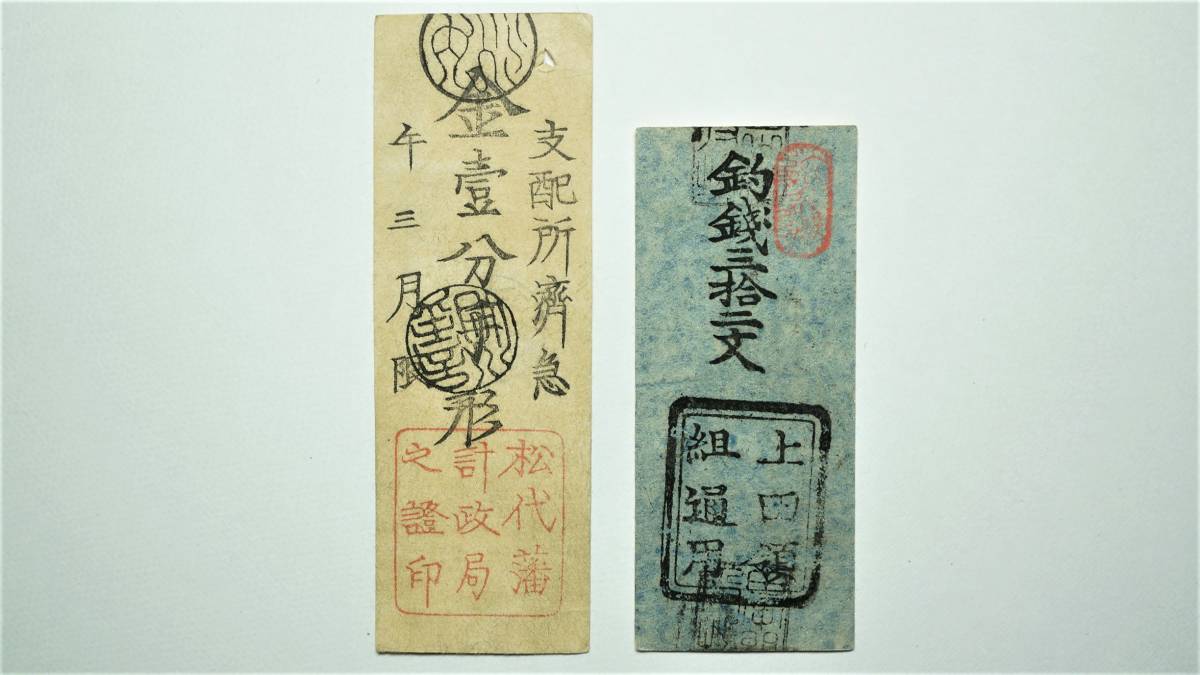 支配所濟急
金壹分手形
午三月限
松代藩
計政局
之證印
釣錢三拾二文
上田
組通用